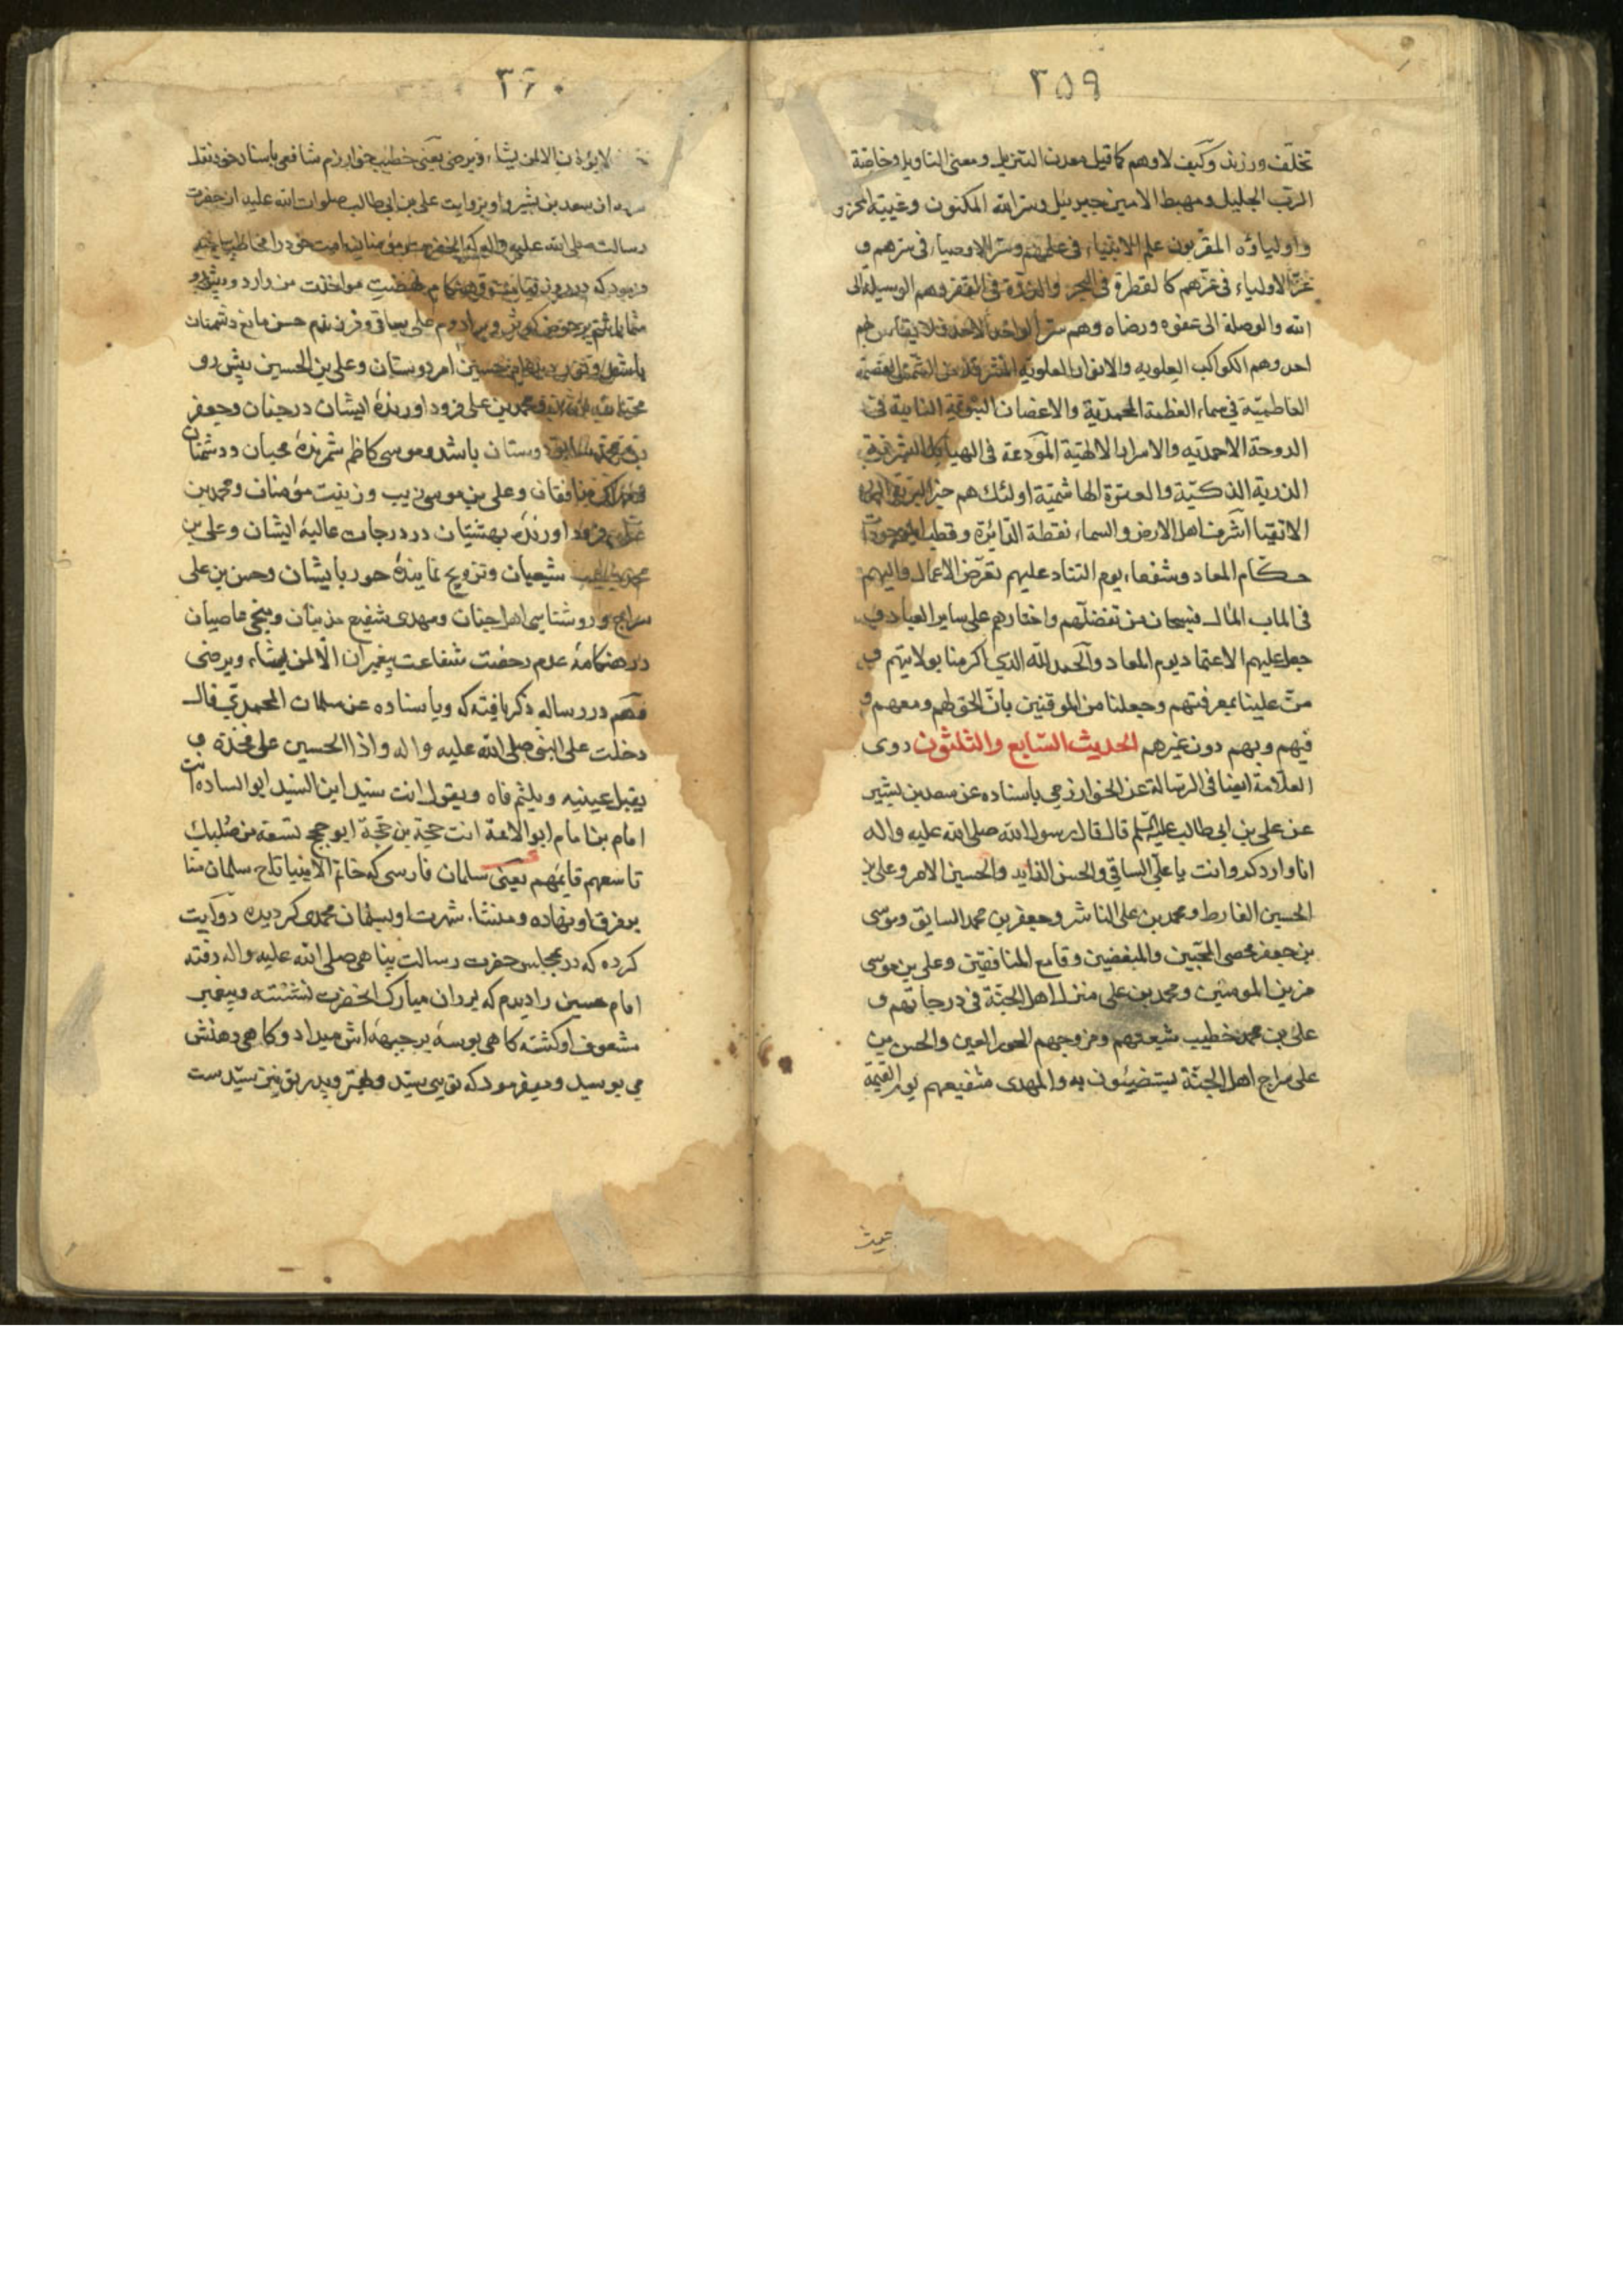 ۳۵۹
تخلّف ورزند وكيف لا وهم كما قيل معدن التنزيل ومعنى التاويل وخاصّة
الرّب الجليل ومهبط الامين جبرئيل وسرّ الله المكنون وغيبته
واولياؤه المقرّبون علم الانبياء فى علمهم وسرّ الاوصياء فى سرّهم و
عزّ الاولياء فى عزّهم كالقطرة فى البحر والذرّة فى القفر وهم الوسيلة الى
الله والوصلة الى عفوه ورضاه وهم سرّ الواحد الاحد فلا يقاس بهم
احد وهم الكواكب العلويه والانوار العلويّة المشرقة من الشمس العصمة
الفاطميّة فى سماء العظمة المحمديّة والاغصان النبويّة النابتة فى
الدوحة الاحمديّه والاسرار الالهيّة المودعة فى الهياكل البشريّة و
الذرية الذكيّة والعترة الهاشميّة اولئك هم خير البريّة
الاتقيا اشرف اهل الارض والسماء نقطة الدّائرة وقطب الموجودات
حكّام المعاد وشفعاء يوم التناد عليهم تعرّض الاعمال واليهم
فى الماب المآل فسبحان من تفضّلهم واختارهم على ساير العباد و
جعل عليهم الاعتماد يوم المعاد والحمد لله الذى اكرمنا بولايتهم و
منّ علينا بمعرفتهم وجعلنا من الموقنين بانّ الحق لهم ومعهم و
فيهم وبهم دون غيرهم الحديث السّابع والثلثون روى
العلّامة ايضا فى الرسالة عن الخوارزمى باسناده عن سعد بن بشير
عن على بن ابى طالب عليه السلم قال قال رسول الله صلى الله عليه واله
انا واردكم وانت يا على السّاقى والحسن الذايد والحسين الامر وعلى بن
الحسين الفارط ومحمد بن على الناشر وجعفر بن محمد السايق وموسى
بن جعفر محصى المحبّين والمبغضين وقامع المنافقين وعلى بن موسى
مزين المومنين ومحمد بن على منزل اهل الجنّة فى درجاتهم و
على بن محمد خطيب شيعتهم ومزوجهم الحور العين والحسن بن
على سراج اهل الجنّة يستضيئون به والمهدى شفيعهم يوم القيمة
۳۶۰
لا يؤذن الا لمن يشاء ويرضى يعنى خطيب خوارزم شافعى باسناد خود نقل
سعد بن بشير و او بروايت على بن ابى طالب صلوات الله عليه از حضرت
رسالت صلى الله عليه واله كه انحضرت
فرمود كه در روز قيامت من وارد و پيش رو
شما باشم بر حوض كوثر و برادرم على ساقى و فرزندم حسن مانع دشمنان
باشد حسين امر دوستان و على بن الحسين پيش رو
محمد بن على فرود اورنده ايشان در جنان و جعفر
بن محمد دوستان باشد و موسى كاظم شمرنده محبان و دشمنان
منافقان و على بن موسى زيب و زينت مؤمنان و محمد بن
على فرود اورنده بهشتيان در درجات عاليه ايشان و على بن
محمد خطيب شيعيان و تزويج نماينده حور بايشان و حسن بن على
سراج و روشنايى اهل جنان و مهدى شفيع مذنبان و منجى عاصيان
در هنكامه عدم رخصت شفاعت بغير ان الا لمن يشاء ويرضى
وهم در رساله ذكر يافته كه وباسناده عن سلمان المحمدىّ قال
دخلت على النبى صلى الله عليه واله واذا الحسين على فخذه و
يقبل عينيه ويلثم فاه ويقول انت سيّد ابن السّيد ابو الساده انت
امام بن امام ابو الائمة انت حجّة بن حجّة ابو حجج تسعة من صلبك
تاسعهم قايمهم يعنى سلمان فارسى كه خاتم الانبيا تاج سلمان منا
بر فرق او نهاده و منشاء شهرت او بسلمان محمدى كرديده روايت
كرده كه در مجلس حضرت رسالت پناهى صلى الله عليه واله رفته
امام حسين را ديدم كه بر ران مبارك انحضرت نشسته و پيغمبر
مشعوف او كشته كاهى بوسه بر جبهه اش ميداد و كاهى دهنش
مى بوسيد و ميفرمود كه تويى سيّد و مهتر و پدر تو نيز سيّد ست